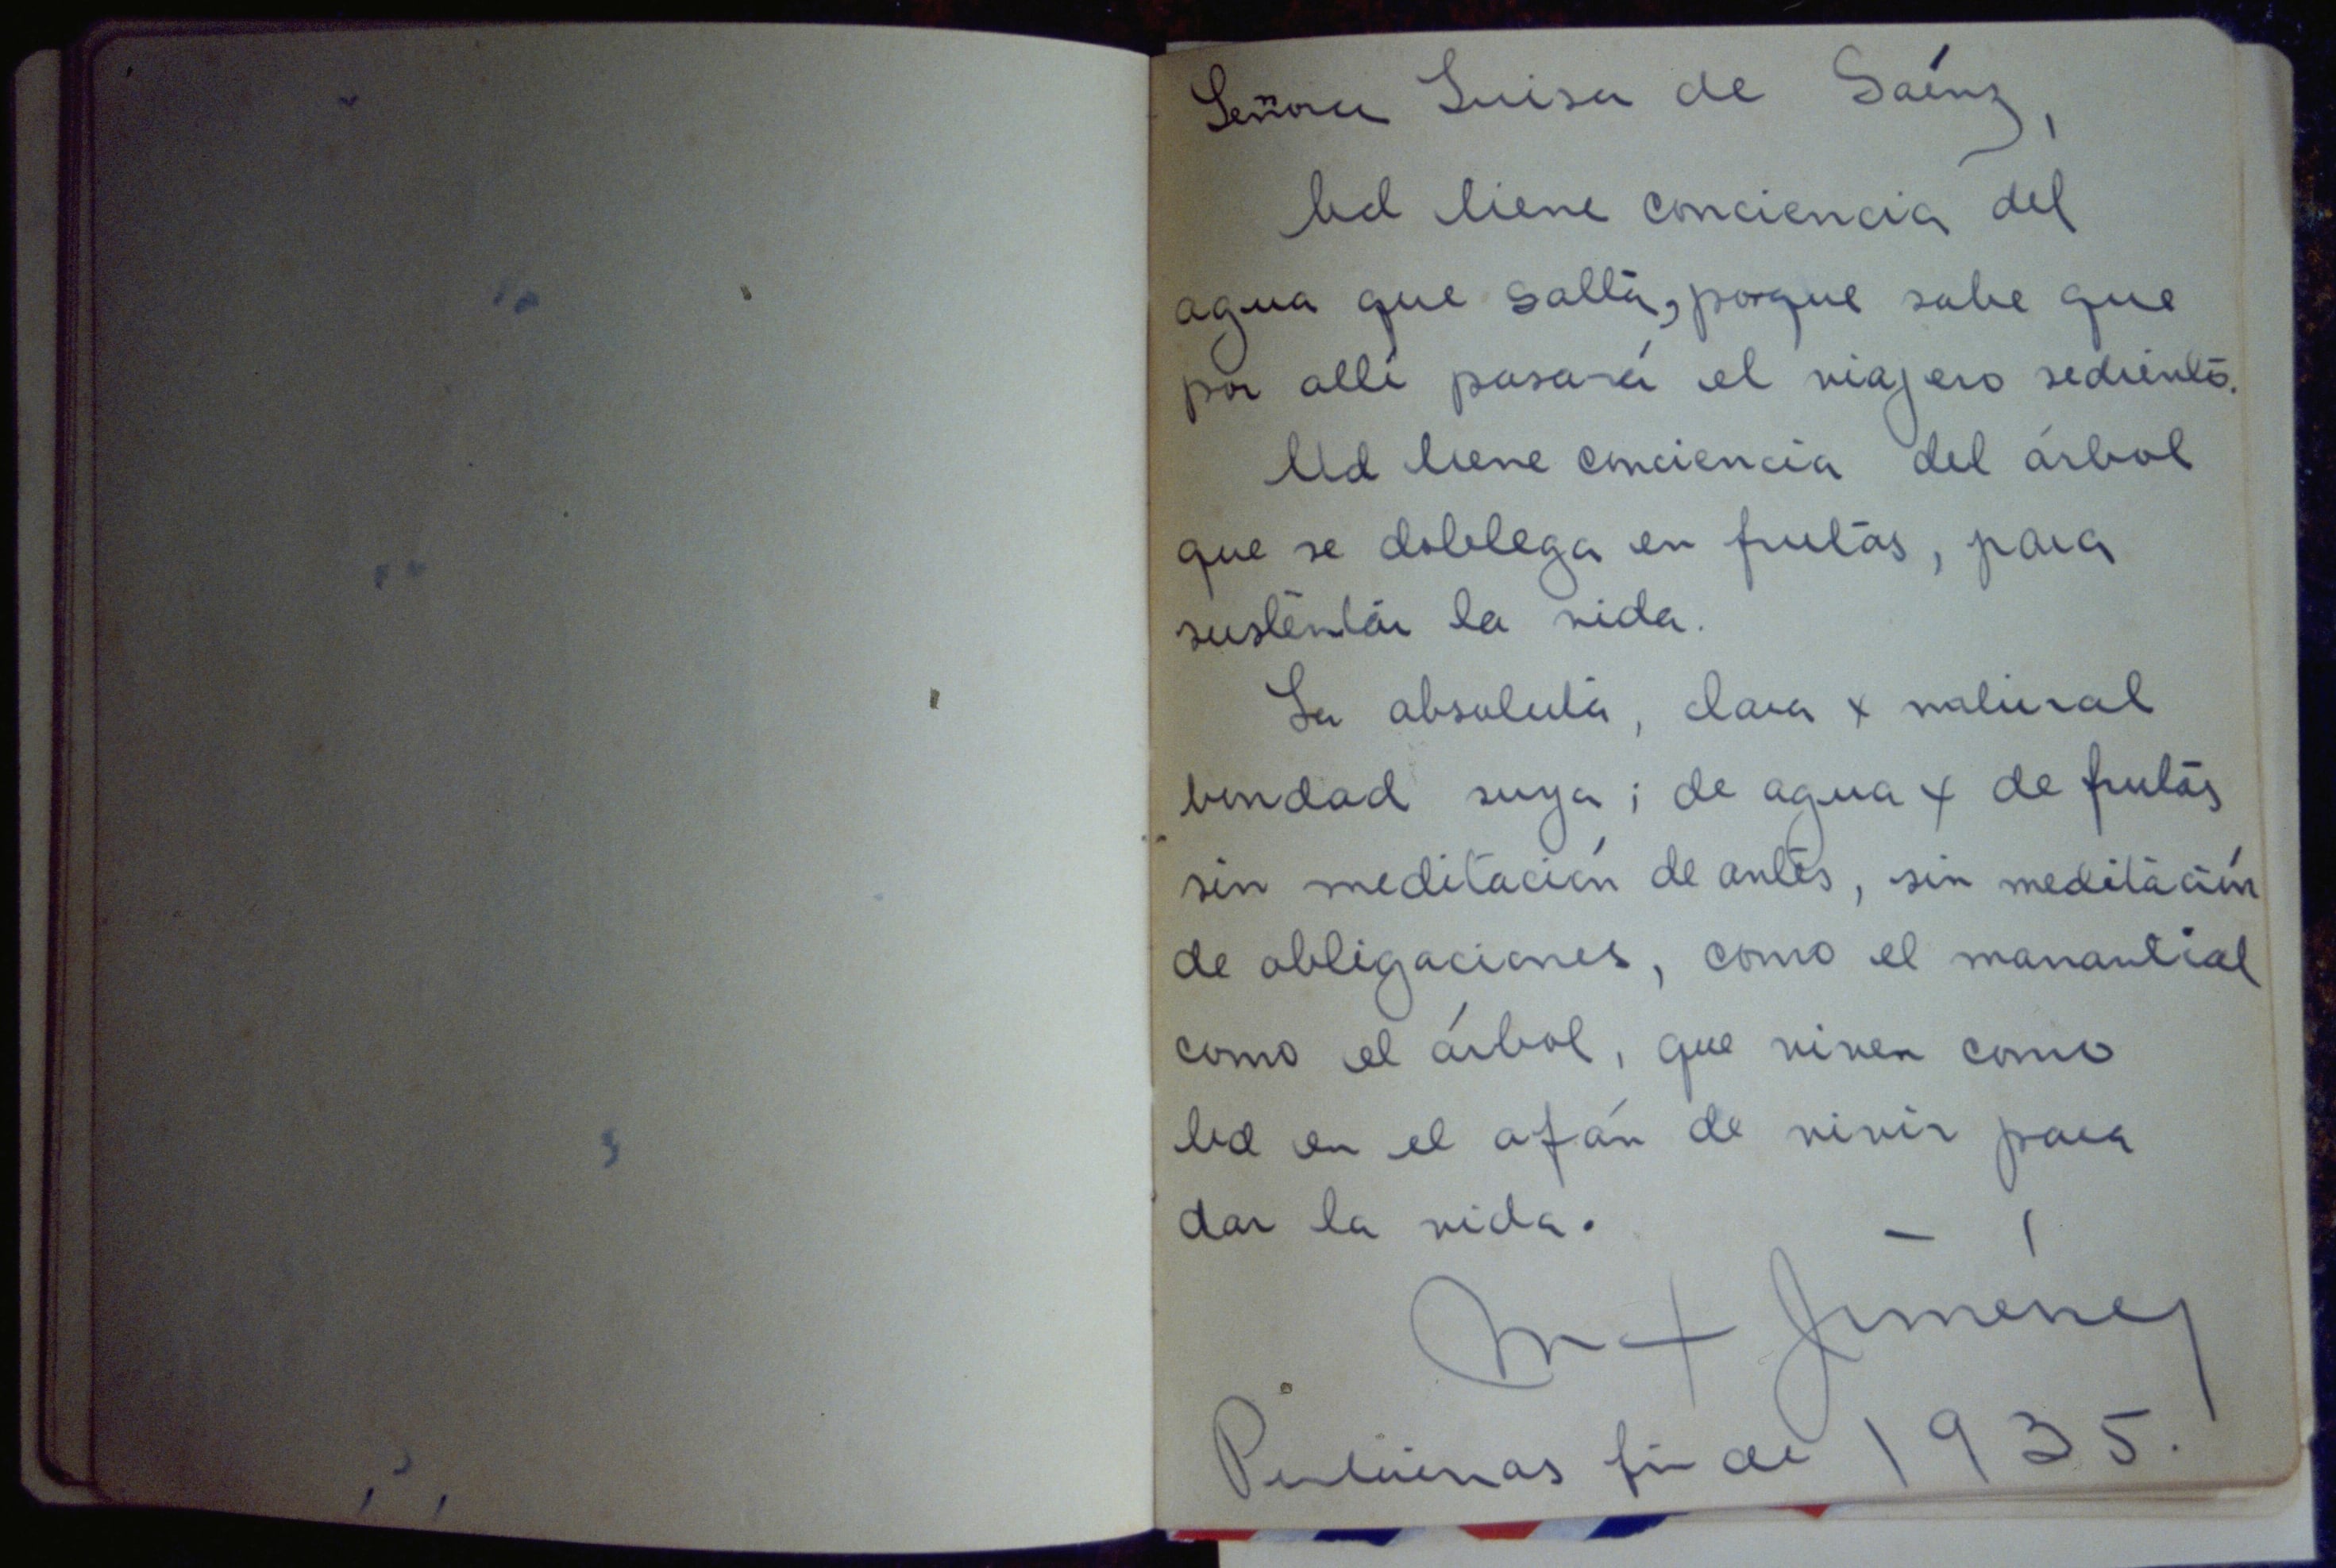 Señora Luisa de Saénz,
Ud tiene conciencia del
agua que salta, porque sabe que
por allí pasará el viajero sediento.
Ud tiene conciencia del árbol
que se doblega en frutas, para
sustentar la vida.
La absoluta, clara y natural
bondad suya; de agua y de frutas
sin meditación de antes, sin meditación
de obligaciones, como el manantial
como el árbol, que viven como
Ud en el afán de vivir para
dar la vida.
M x Jiménez
fin de 1935.